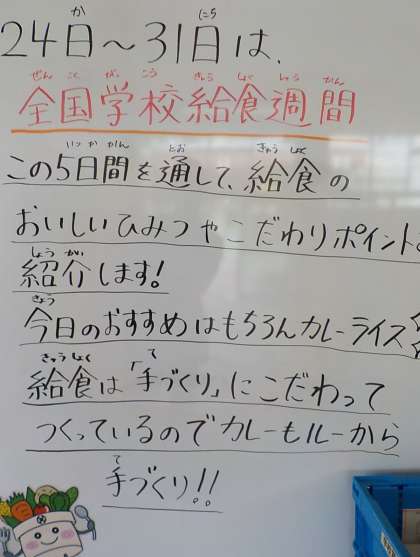 24日～31日は、
全国学校給食週間
この5日間を通して、給食の
おいしいひみつやこだわりポイント
紹介します!
今日のおすすめはもちろんカレーライス
給食は「手づくり」にこだわって
つくっているのでカレーもルーから
手づくり!!